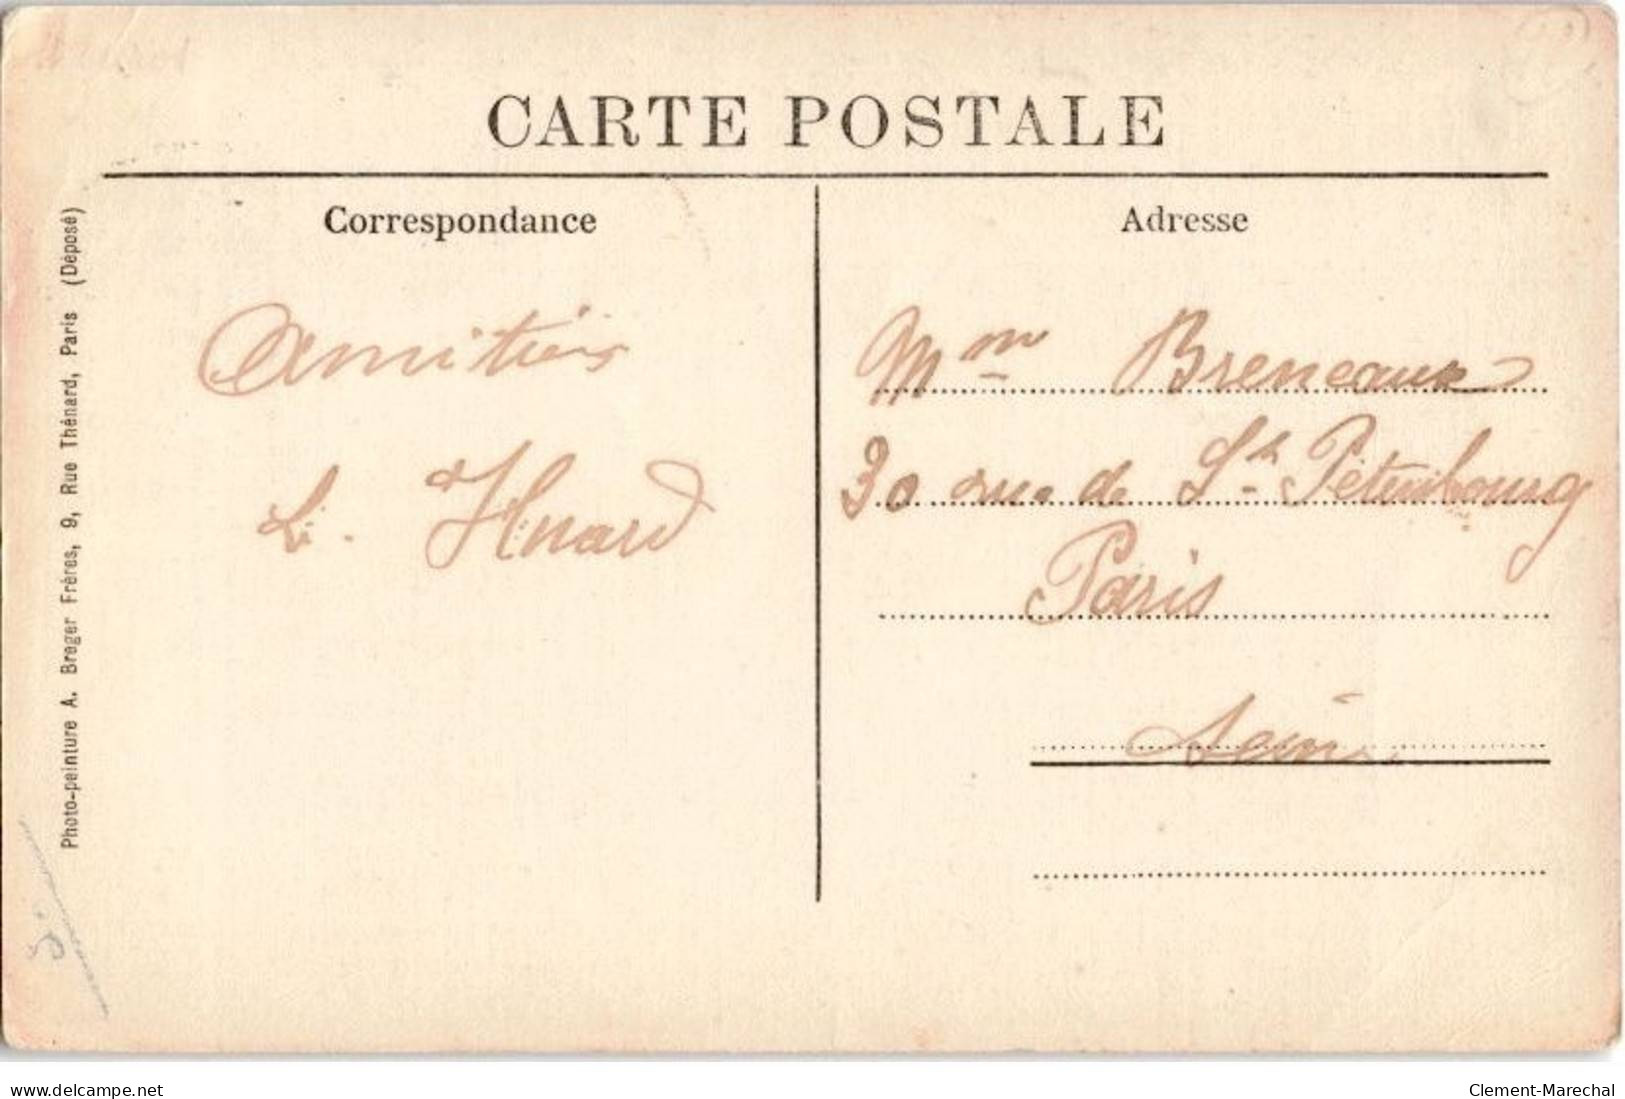 CARTE POSTALE
Correspondance
Amitiés
L. Huard
Adresse
Mme Breneaux
30 rue de St. Pétersbourg
Paris
Seine
Photo-peinture A. Breger Frères, 9, Rue Thénard, Paris (Déposé)
www.delcampe.net
Clement-Marechal